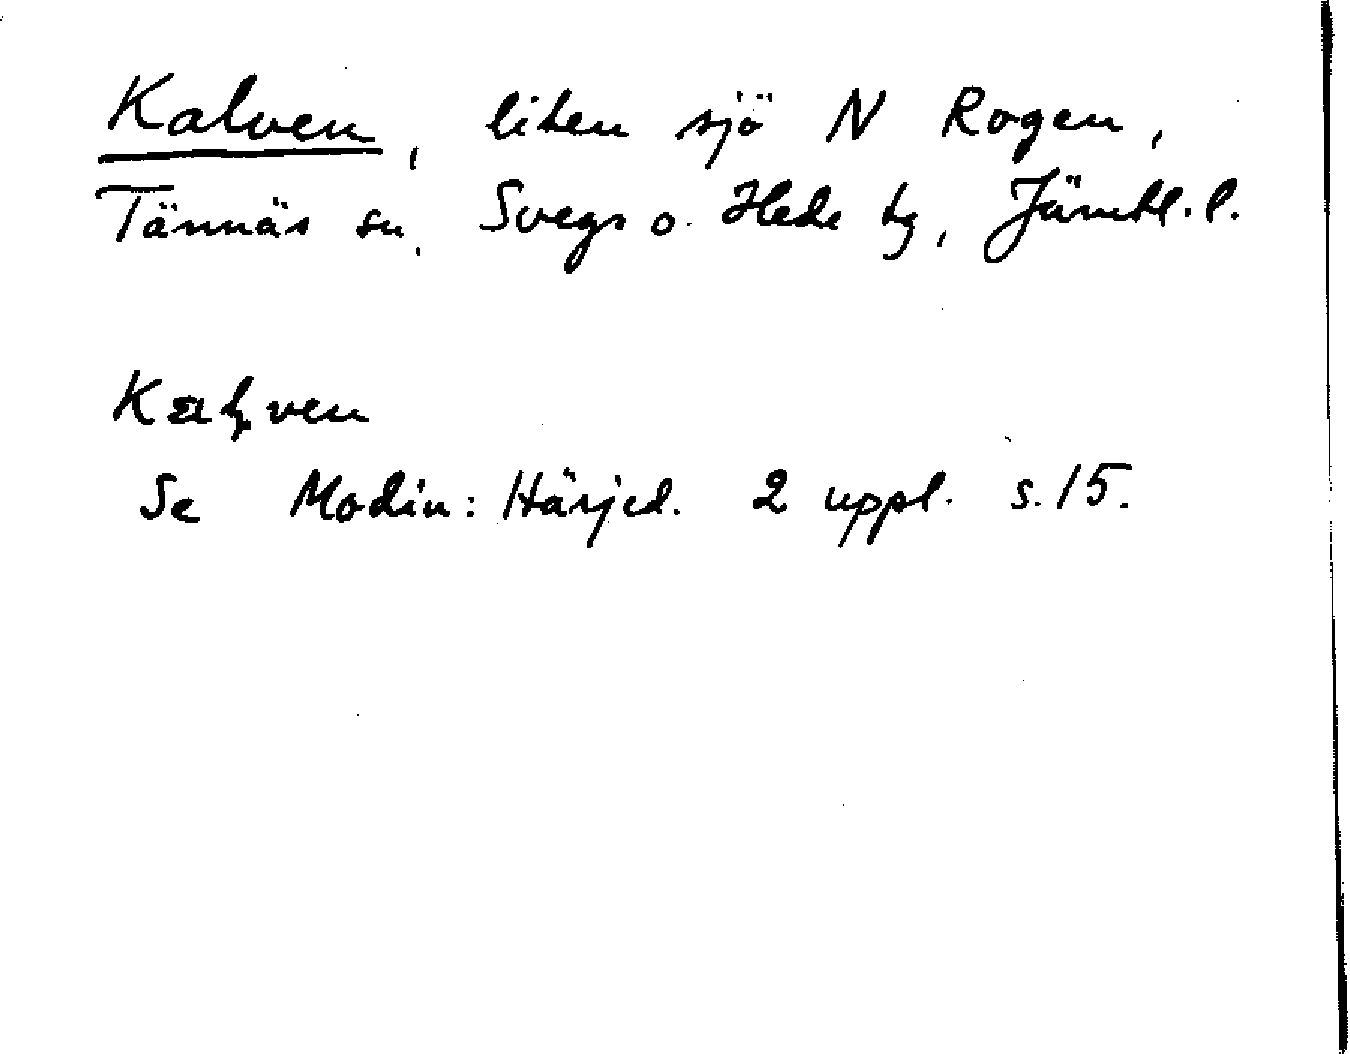 Kalven, liten sjö N Rogen,
Tännäs sn, Svegs o. Hede tg, Jämtl. l.
Kaɫven
Se Modin: Härjed. 2 uppl. s. 15.